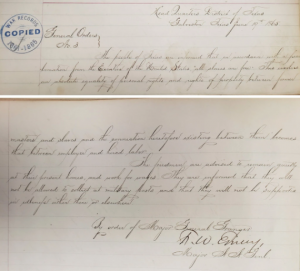 WAR RECORDS
COPIED
1861-1865
Head Quarters District of Texas
Galveston Texas June 19th 1865.
General Orders
No. 3
The people of Texas are informed that in accordance with a
Proclamation from the Executive of the United States all slaves are free. This involves
an absolute equality of personal rights and rights of property between former
masters and slaves and the connection heretofore existing between them becomes
that between employer and hired labor.
The freedmen are advised to remain quietly
at their present homes and work for wages. They are informed that they will
not be allowed to collect at military posts and that they will not be supported
in idleness either there or elsewhere.
By order of Major General Granger
F.W. Emery
Major A.A. Genl.